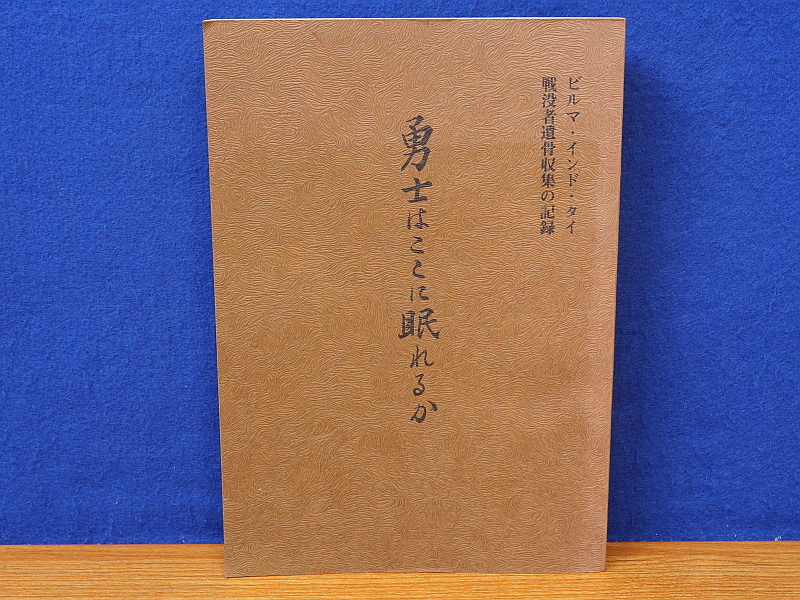 ビルマ・インド・タイ
戦没者遺骨収集の記録
勇士はここに眠れるか